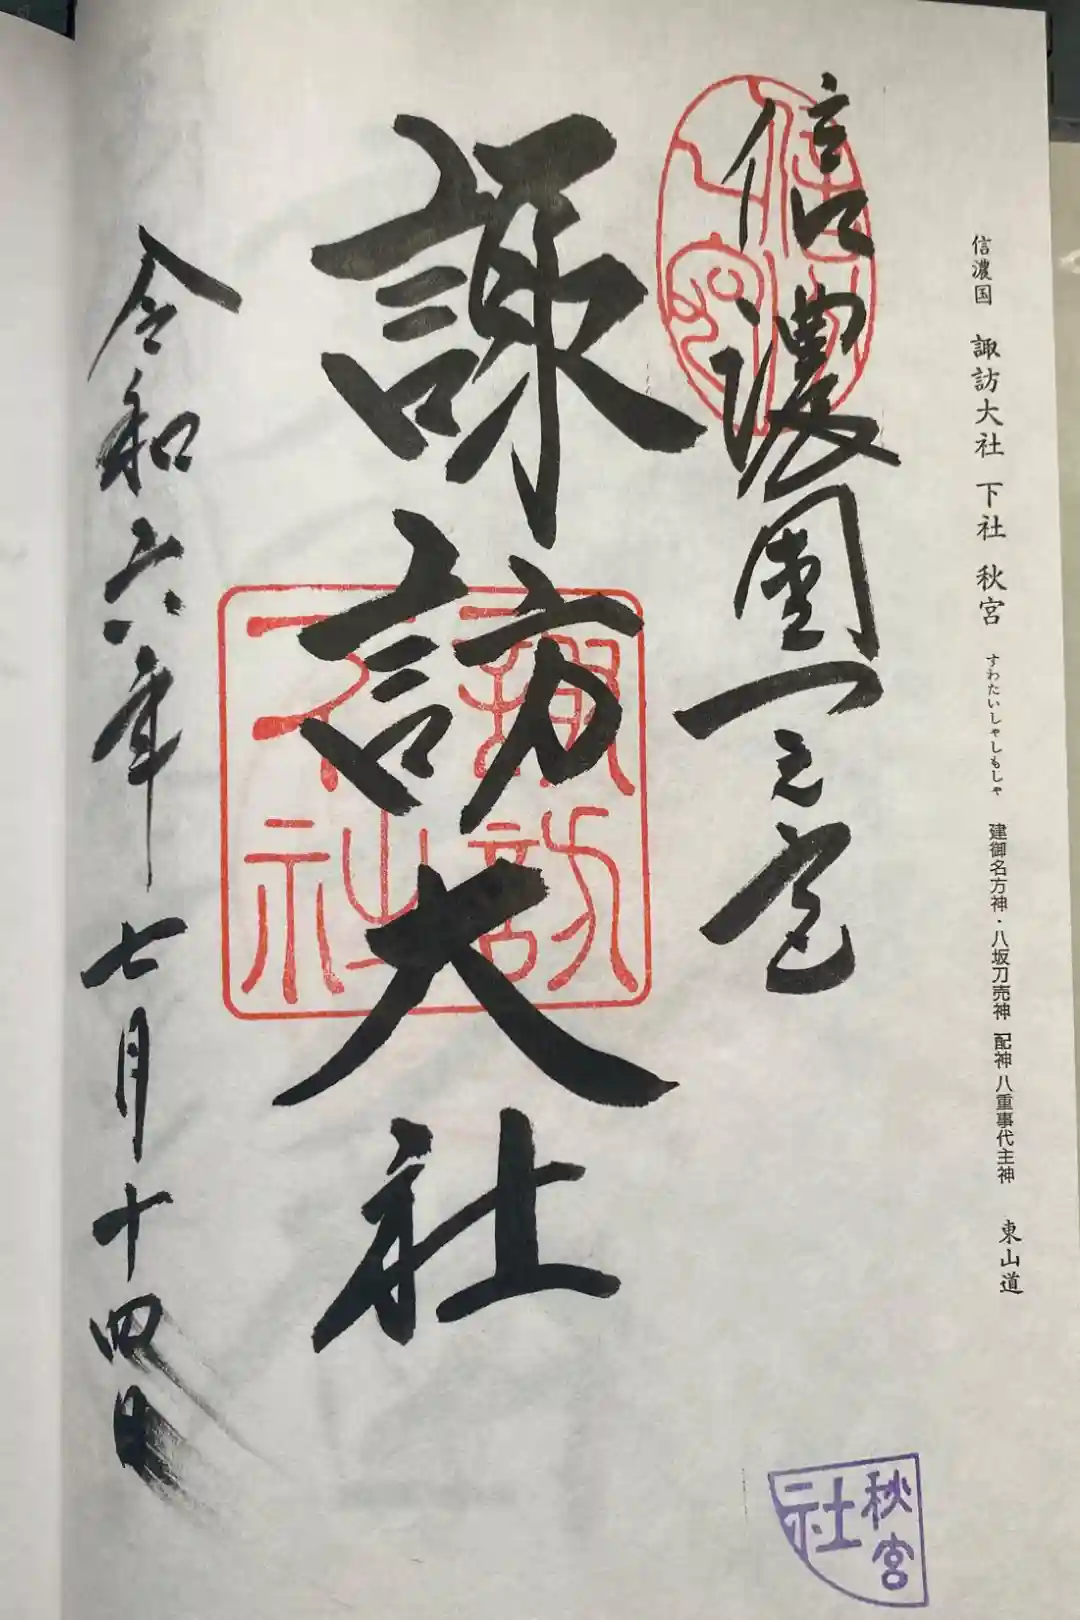 信濃国 諏訪大社 下社 秋宮 すわたいしゃしもしゃ 建御名方神・八坂刀売神 配神 八重事代主神 東山道
信濃國一之宮
諏訪大社
令和六年七月十四日
諏訪
大社
秋宮
社